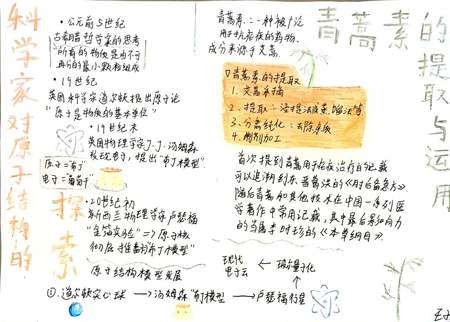 科学家对原子结构的
探索
·公元前5世纪
古希腊哲学家的思考
"所有的物质是由不可
再分的最小颗粒组成
·19世纪
英国科学家道尔顿提出原子论
"原子是物质的基本单位"
·19世纪末
英国物理学家J.J.汤姆森
发现电子，提出"布丁模型"
原子="布丁"
电子="葡萄干"
·20世纪初
新西兰物理学家卢瑟福
"金箔实验"=>原子核
彻底推翻"布丁模型"
原子结构模型发展
①.道尔顿实心球→汤姆森"布丁模型→卢瑟福行星
→玻尔量子化
←
现代
电子云
青蒿素的
提取与运用
青蒿素：一种被广泛
用于抗疟疾的药物，
成分来源于艾蒿，
▽青蒿素的提取
1.艾蒿采摘
2.提取：浸提法或蒸馏法等
3.分离纯化：去除杂质
4.制剂加工
首次提到青蒿用于疟疾治疗的记载
可以追溯到东晋葛洪的《肘后备急方》
随后青蒿和其他技术在中国一系列医
学著作中常用记载，其中最后影响力
的当属李时珍的《本草纲目》